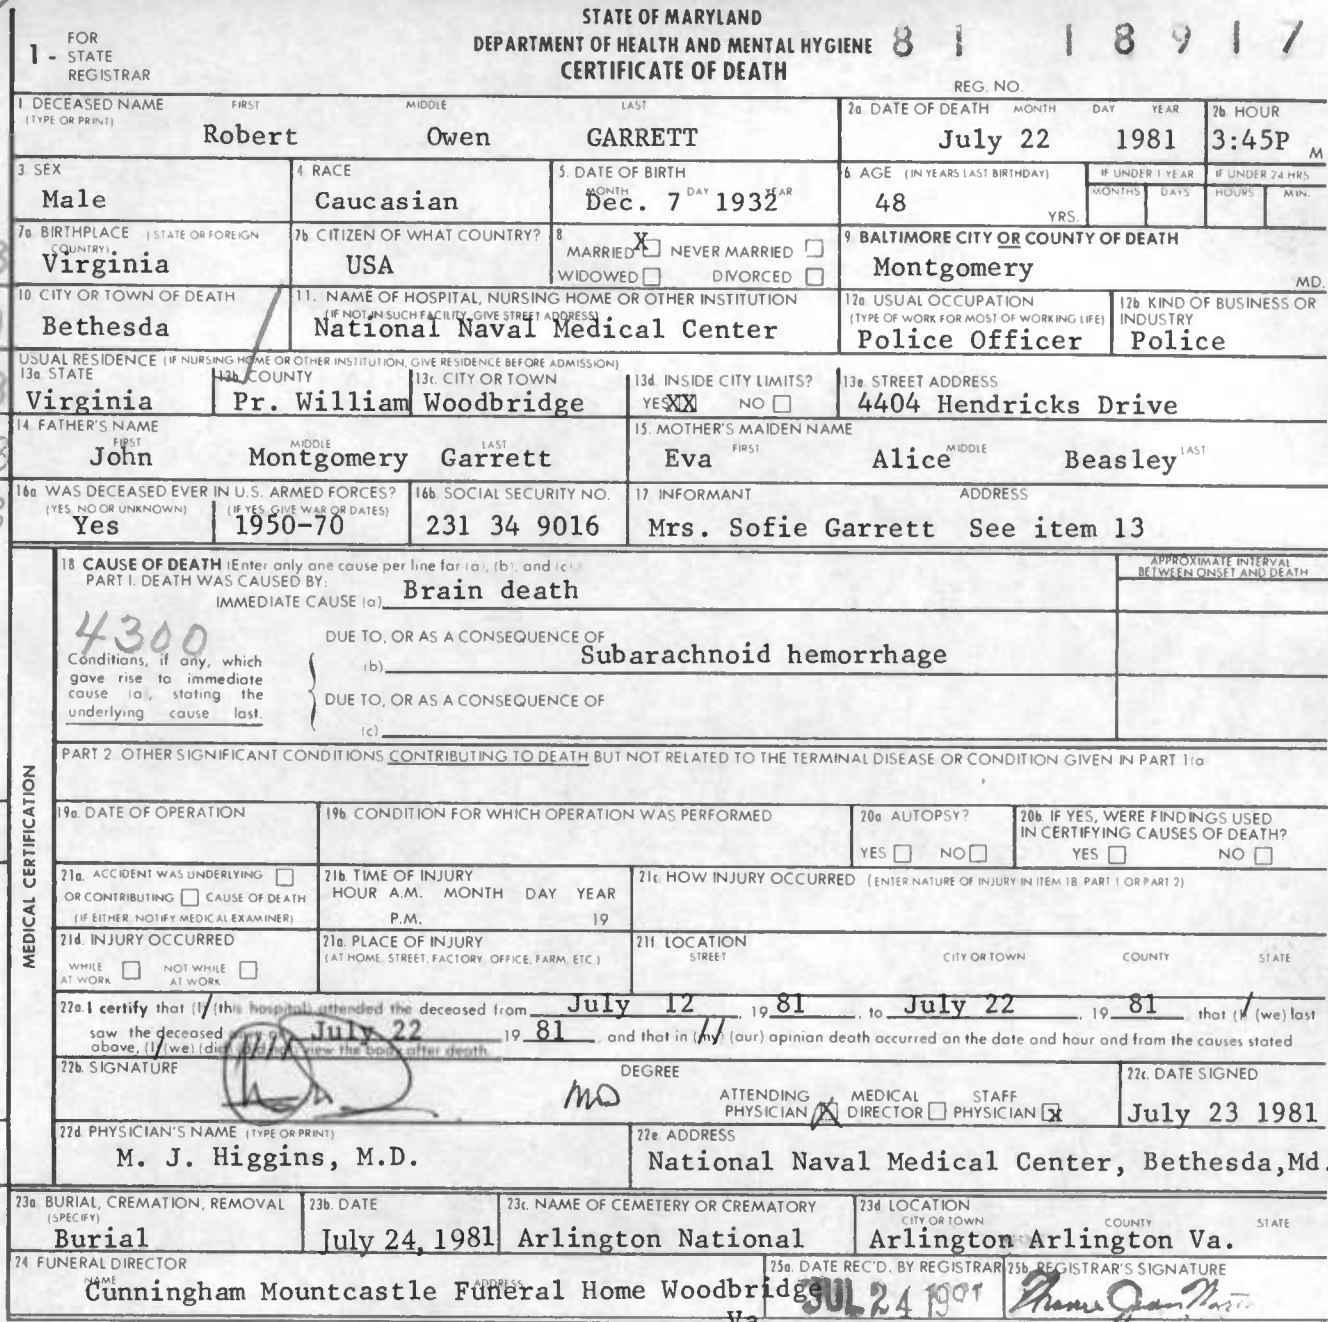 STATE OF MARYLAND
DEPARTMENT OF HEALTH AND MENTAL HYGIENE 81 18917
CERTIFICATE OF DEATH
1 - FOR STATE REGISTRAR
REG. NO.
1 DECEASED NAME (TYPE OR PRINT) FIRST MIDDLE LAST
Robert Owen GARRETT
2a DATE OF DEATH MONTH DAY YEAR
July 22 1981
2b HOUR
3:45P M
3 SEX
Male
4 RACE
Caucasian
5. DATE OF BIRTH
MONTH DAY YEAR
Dec. 7 1932
6 AGE (IN YEARS LAST BIRTHDAY)
48 YRS.
IF UNDER 1 YEAR
MONTHS DAYS
IF UNDER 24 HRS
HOURS MIN.
7a BIRTHPLACE (STATE OR FOREIGN COUNTRY)
Virginia
7b CITIZEN OF WHAT COUNTRY?
USA
8 MARRIED X NEVER MARRIED
WIDOWED DIVORCED
9 BALTIMORE CITY OR COUNTY OF DEATH
Montgomery MD.
10 CITY OR TOWN OF DEATH
Bethesda
11. NAME OF HOSPITAL, NURSING HOME OR OTHER INSTITUTION
(IF NOT IN SUCH FACILITY, GIVE STREET ADDRESS)
National Naval Medical Center
12a USUAL OCCUPATION
(TYPE OF WORK FOR MOST OF WORKING LIFE)
Police Officer
12b KIND OF BUSINESS OR INDUSTRY
Police
USUAL RESIDENCE (IF NURSING HOME OR OTHER INSTITUTION, GIVE RESIDENCE BEFORE ADMISSION)
13a STATE
Virginia
13b COUNTY
Pr. William
13c. CITY OR TOWN
Woodbridge
13d INSIDE CITY LIMITS?
YES XX NO
13e STREET ADDRESS
4404 Hendricks Drive
14 FATHER'S NAME
FIRST MIDDLE LAST
John Montgomery Garrett
15. MOTHER'S MAIDEN NAME
FIRST MIDDLE LAST
Eva Alice Beasley
16a WAS DECEASED EVER IN U.S. ARMED FORCES?
(YES, NO OR UNKNOWN) (IF YES, GIVE WAR OR DATES)
Yes 1950-70
16b SOCIAL SECURITY NO.
231 34 9016
17 INFORMANT ADDRESS
Mrs. Sofie Garrett See item 13
MEDICAL CERTIFICATION
18 CAUSE OF DEATH (Enter only one cause per line for (a), (b), and (c)
PART I. DEATH WAS CAUSED BY:
IMMEDIATE CAUSE (a) Brain death
APPROXIMATE INTERVAL BETWEEN ONSET AND DEATH
4300
Conditions, if any, which gave rise to immediate cause (a), stating the underlying cause last.
DUE TO, OR AS A CONSEQUENCE OF
(b) Subarachnoid hemorrhage
DUE TO, OR AS A CONSEQUENCE OF
(c)
PART 2 OTHER SIGNIFICANT CONDITIONS CONTRIBUTING TO DEATH BUT NOT RELATED TO THE TERMINAL DISEASE OR CONDITION GIVEN IN PART 1(a
19a. DATE OF OPERATION
19b CONDITION FOR WHICH OPERATION WAS PERFORMED
20a AUTOPSY?
YES NO
20b. IF YES, WERE FINDINGS USED IN CERTIFYING CAUSES OF DEATH?
YES NO
21a. ACCIDENT WAS UNDERLYING
OR CONTRIBUTING CAUSE OF DEATH
(IF EITHER NOTIFY MEDICAL EXAMINER)
21b. TIME OF INJURY
HOUR A.M. MONTH DAY YEAR
P.M. 19
21c HOW INJURY OCCURRED (ENTER NATURE OF INJURY IN ITEM 18 PART 1 OR PART 2)
21d. INJURY OCCURRED
WHILE AT WORK NOT WHILE AT WORK
21e. PLACE OF INJURY
(AT HOME, STREET, FACTORY, OFFICE, FARM, ETC.)
21f LOCATION
STREET CITY OR TOWN COUNTY STATE
22a. I certify that (I) (this hospital) attended the deceased from July 12, 19 81, to July 22, 19 81 that (I) (we) last
saw the deceased July 22 19 81, and that in (my) (our) opinian death accurred an the date and haur and fram the causes stated
above, (I) (we) (did) (did not) view the body after death.
22b. SIGNATURE DEGREE
MD
ATTENDING PHYSICIAN X MEDICAL DIRECTOR STAFF PHYSICIAN X
22c. DATE SIGNED
July 23 1981
22d PHYSICIAN'S NAME (TYPE OR PRINT)
M. J. Higgins, M.D.
22e ADDRESS
National Naval Medical Center, Bethesda,Md.
23a BURIAL, CREMATION, REMOVAL (SPECIFY)
Burial
23b. DATE
July 24, 1981
23c. NAME OF CEMETERY OR CREMATORY
Arlington National
23d LOCATION
CITY OR TOWN COUNTY STATE
Arlington Arlington Va.
24 FUNERAL DIRECTOR
NAME ADDRESS
Cunningham Mountcastle Funeral Home Woodbridge
Va
25a. DATE REC'D. BY REGISTRAR
JUL 24 1981
25b REGISTRAR'S SIGNATURE